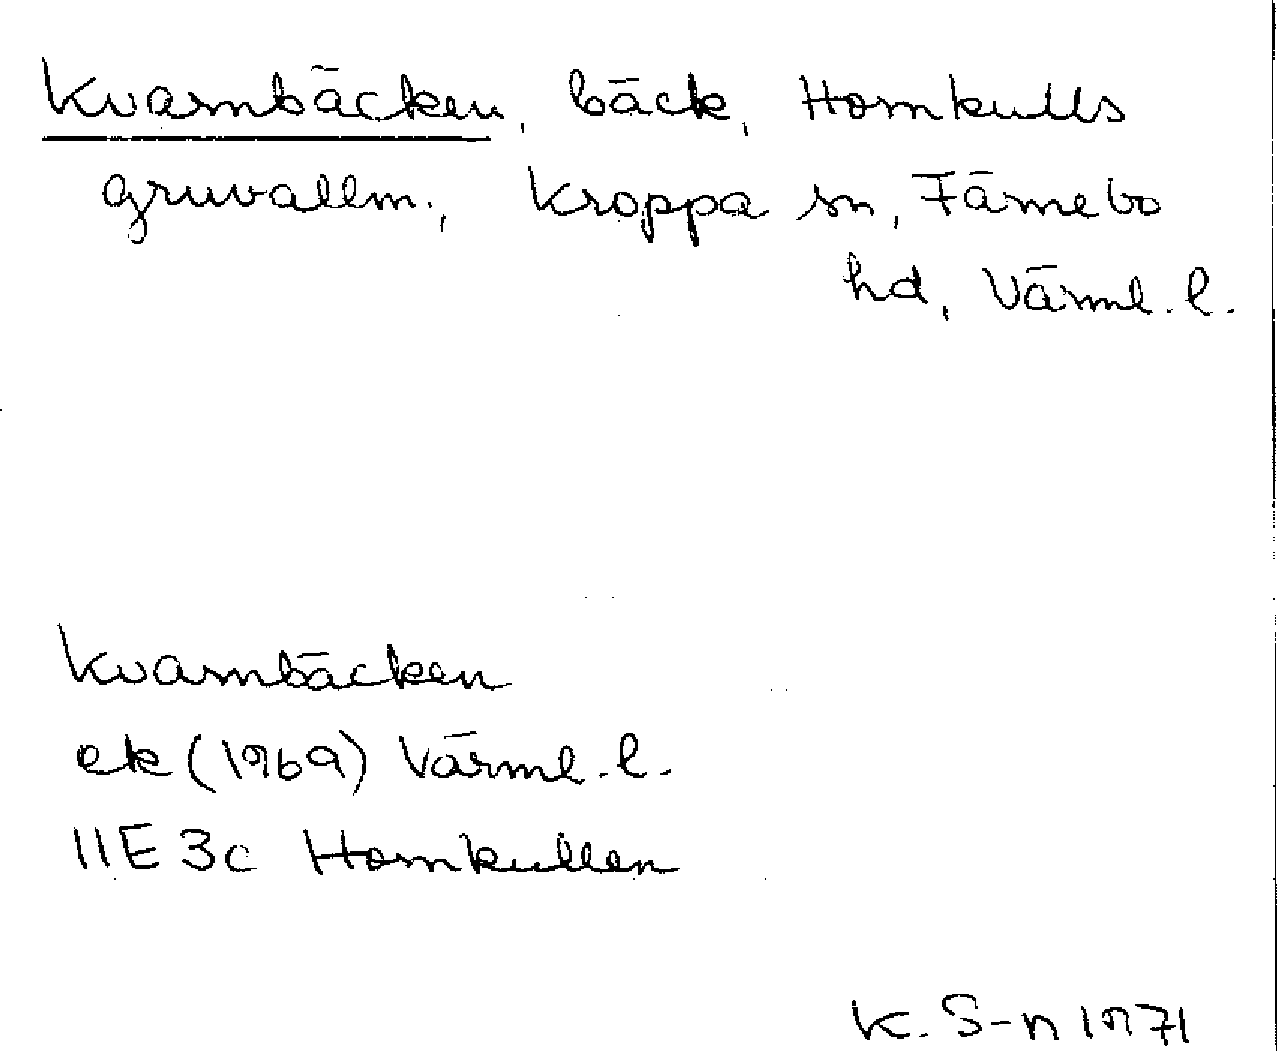 Kvarnbäcken, bäck, Hornkulls
gruvallm., Kroppa sn, Färnebo
hd, Värml. l.
Kvarnbäcken
ek (1969) Värml. l.
11E 3c Hornkullen
K. S-n 1971